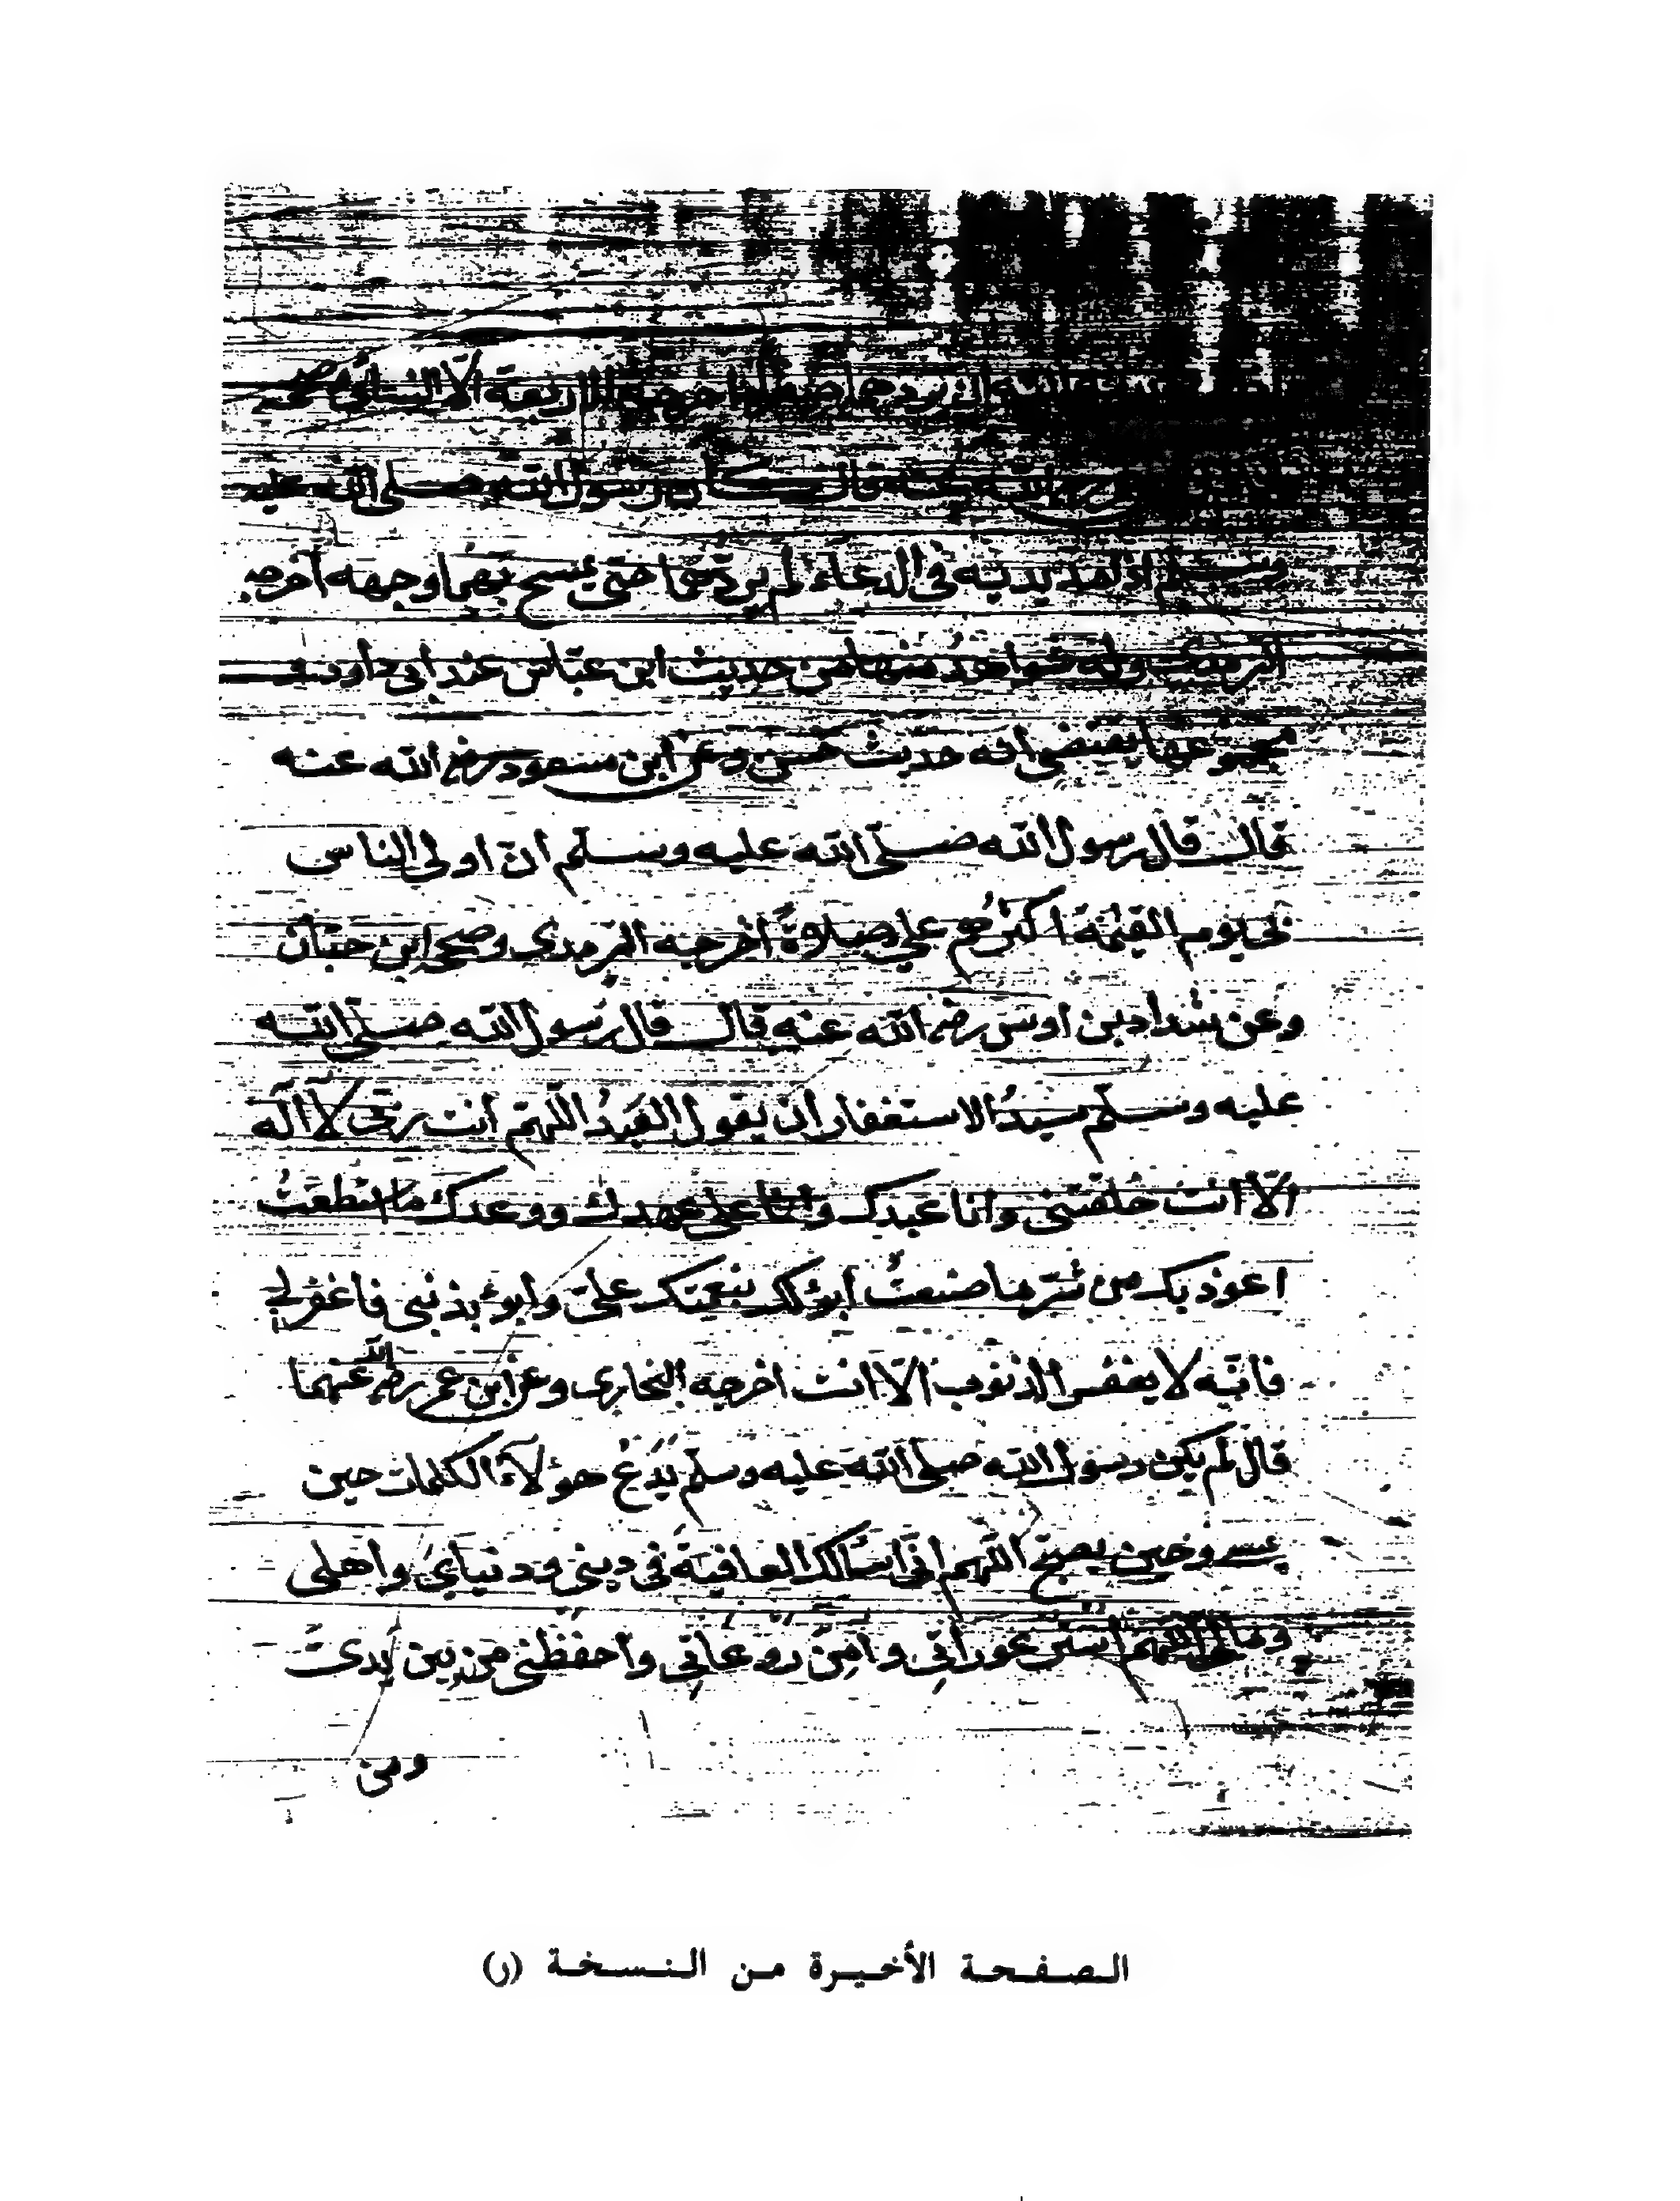 ان يردهما صفرا اخرجه الاربعة الّا النسائي وصححه
رضي الله عنه قال كان رسول الله صلى الله عليه
وسلم اذا مد يديه في الدعاء لم يردّهما حتى يمسح بهما وجهه اخرجه
الترمذي وله شواهد منها من حديث ابن عبّاس عند ابي داود
مجموعها يقتضي انه حديث حسن وعن ابن مسعود رضي الله عنه
قال قال رسول الله صلّى الله عليه وسلم انّ اولى الناس
بي يوم القيمة اكثرُهم عليّ صلاةً اخرجه الترمذي وصححه ابن حبّان
وعن شداد بن اوس رضي الله عنه قال قال رسول الله صلّى الله
عليه وسلّم سيدُ الاستغفار ان يقول العَبدُ اللّهمّ انت ربّي لآ اله
الّا انت خلقتني وانا عبدك وانا على عهدك ووعدك ما استطعتُ
اعوذ بك من شرّ ما صنعتُ ابوٴ لك بنعمتك عليّ وابوٴ بذنبي فاغفر لي
فانّه لا يغفر الذنوب الّا انت اخرجه البخاري وعن ابن عمر رضي الله عنهما
قال لم يكن رسول الله صلى الله عليه وسلم يَدَعُ هؤلآء الكلمات حين
يمسي وحين يصبح اللّهم انّي اسٔالك العافية في ديني ودنيايَ واهلي
ومالي اللّهمّ استر عوراتي وآمِنْ رَوْعاتي واحفظني من بين يديّ
ومن
الصفحة الأخيرة من النسخة (ر)